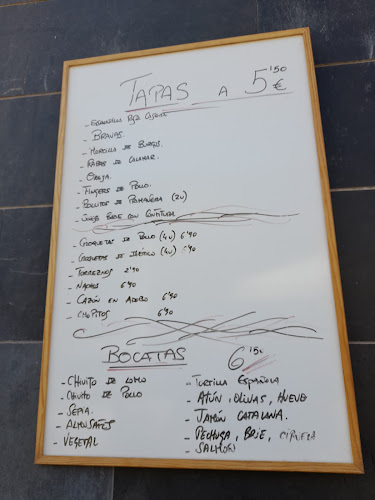 TAPAS A 5'50 €
- BRAVAS
- MORCILLA DE BURGOS
- RABAS DE CALAMAR.
- OREJA.
- FINGERS DE POLLO.
- ROLLITOS DE PRIMAVERA (2U)
BRIE CON CONFITURA
- CROQUETAS DE POLLO (4U) 6'90
- CROQUETAS DE IBÉRICO (4U) 6'90
- TORREZNOS 2'90
- NACHOS 6'90
- CAZÓN EN ADOBO 6'90
- CHOPITOS 6'90
BOCATAS 6'50
- CHIVITO DE LOMO
- CHIVITO DE POLLO
- SEPIA.
- ALMUSSAFES
- VEGETAL
- TORTILLA ESPAÑOLA
- ATÚN, OLIVAS, HUEVO
- JAMÓN CATALANA.
- PECHUGA, BRIE, CIRUELA
- SALMON